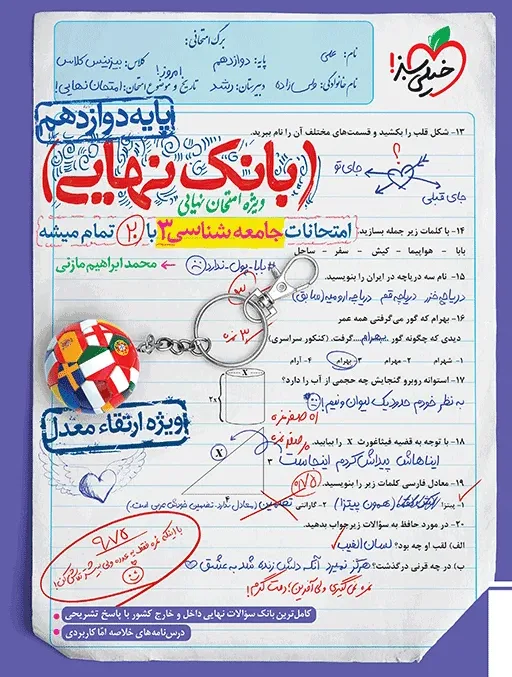 خیلی سبز!
برگ امتحانی:
نام: علی
پایه: دوازدهم
کلاس: بیزینس کلاس
نام خانوادگی:
دبیرستان: رشد
تاریخ و موضوع امتحان: امروز! امتحان نهایی!
پایه دوازدهم
۱۳- شکل قلب را بکشید و قسمت‌های مختلف آن را نام ببرید.
؟
جای تو
جای قبلی
(بانک نهایی)
ویژه امتحان نهایی
امتحانات جامعه شناسی ۳ با ۲۰ تمام میشه
محمدابراهیم مازنی
۱۴- با کلمات زیر جمله بسازید:
بابا - هواپیما - کیش - سفر - ساحل
#بابا-پول-ندارد
۱۵- نام سه دریاچه در ایران را بنویسید.
دریاچه خزر دریاچه قم دریاچه ارومیه (سابق)
۱۶- بهرام که گور می‌گرفتی همه عمر
دیدی که چگونه گور بهرام گرفت. (کنکور سراسری)
۱- شهرام ۲- مهرام ۳- بهرام ۴- آرام
۱۷- استوانه روبرو گنجایش چه حجمی از آب را دارد؟
X
2x
به نظر خودم حدود یک لیوان و نیم!
۱۸- با توجه به قضیه فیثاغورث X را بیابید.
X
۳
۴
ایناهاش پیداش کردم اینجاست
ویژه ارتقاء معدل
۱۹- معادل فارسی کلمات زیر را بنویسید.
۱- پیتزا (همون پیتزا) ۲- گارانتی تضمین (معادل ندارد. تضمین خودش عربی است.)
۲۰- در مورد حافظ به سؤالات زیر جواب بدهید.
الف) لقب او چه بود؟ لسان الغیب
ب) در چه قرنی درگذشت؟ هرگز نمیرد آنکه دلش زنده شد به عشق
نمره نمی‌گیری ولی آفرین؛ دمت گرم!
۹/۷۵
کامل‌ترین بانک سؤالات نهایی داخل و خارج کشور با پاسخ تشریحی
درس‌نامه‌های خلاصه اما کاربردی